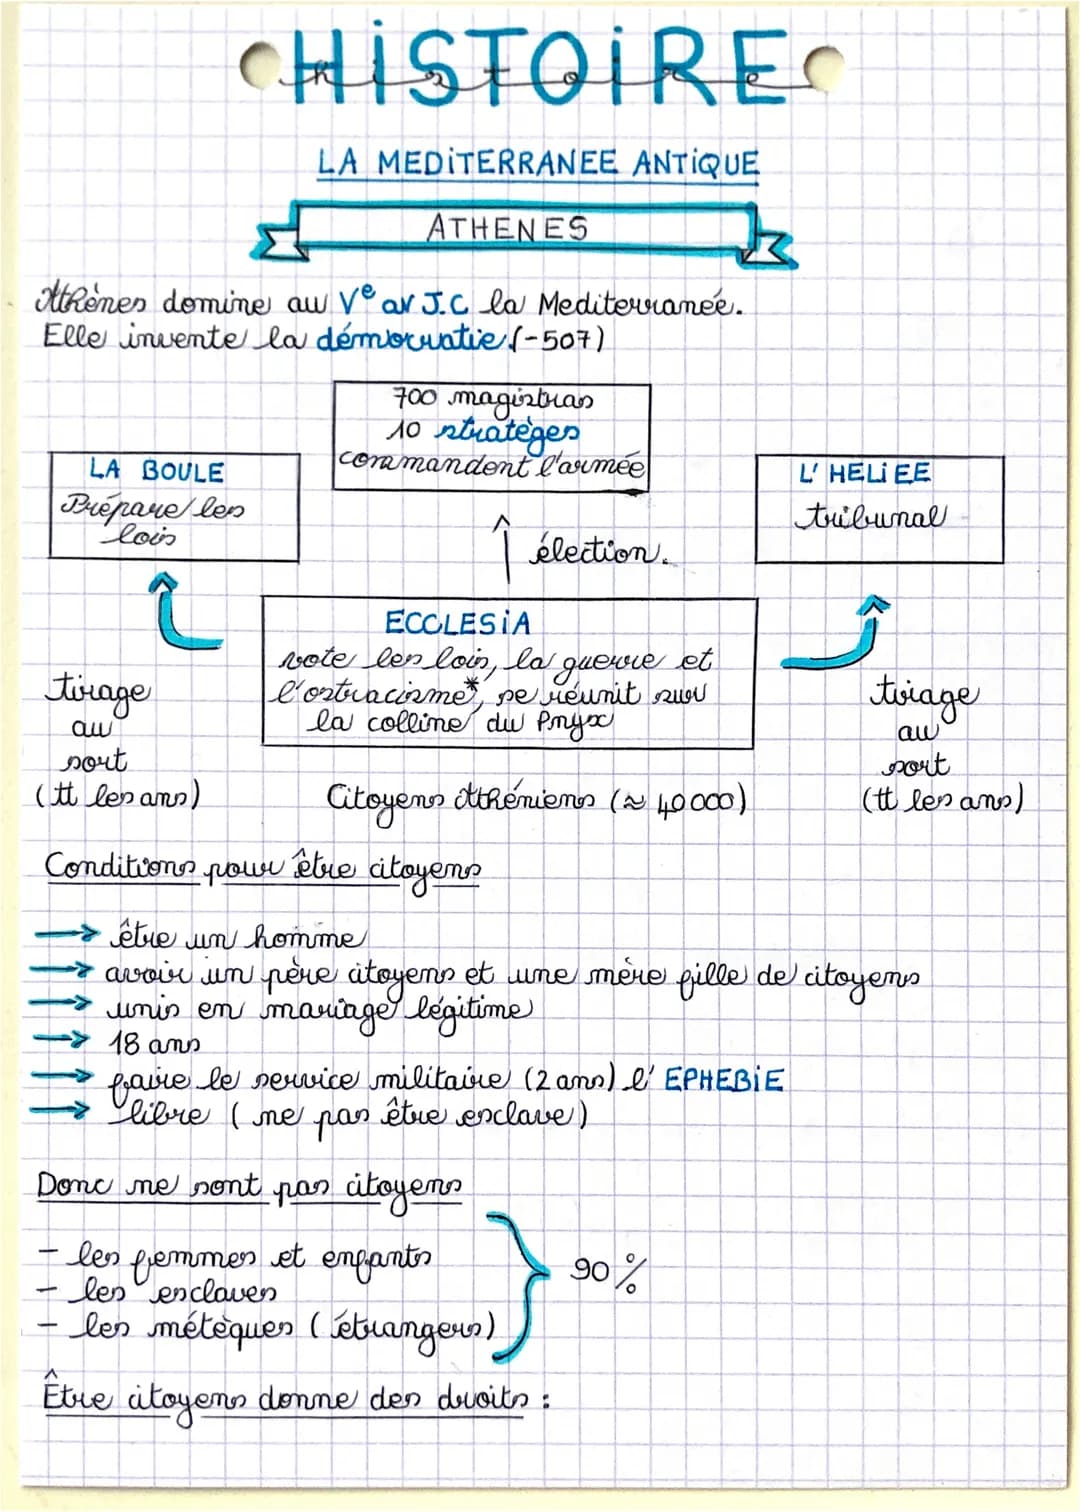 HiSTOiRE
histoire
LA MEDiTERRANEE ANTiQUE
ATHENES
Athènes domine au Ve av J.C la Mediterranée.
Elle invente la démocratie (-507)
700 magistras
10 stratèges
commandent l'armée
LA BOULE
Prépare les
lois
L' HELiEE
tribunal
élection.
ECCLESiA
vote les lois, la guerre et
l'ostracisme*, se réunit sur
la colline du Pnyx
tirage
au
sort
(tt les ans)
tirage
au
sort
(tt les ans)
Citoyens Athéniens (≈ 40 000)
Conditions pour être citoyens
→ être un homme
→ avoir un père citoyens et une mère fille de citoyens
→ unis en mariage légitime
→ 18 ans
→ faire le service militaire (2 ans) l' EPHEBiE
→ libre ( ne pas être esclave)
Donc ne sont pas citoyens
- les femmes et enfants
- les esclaves
- les métèques ( étrangers)
90 %
Être citoyens donne des droits :